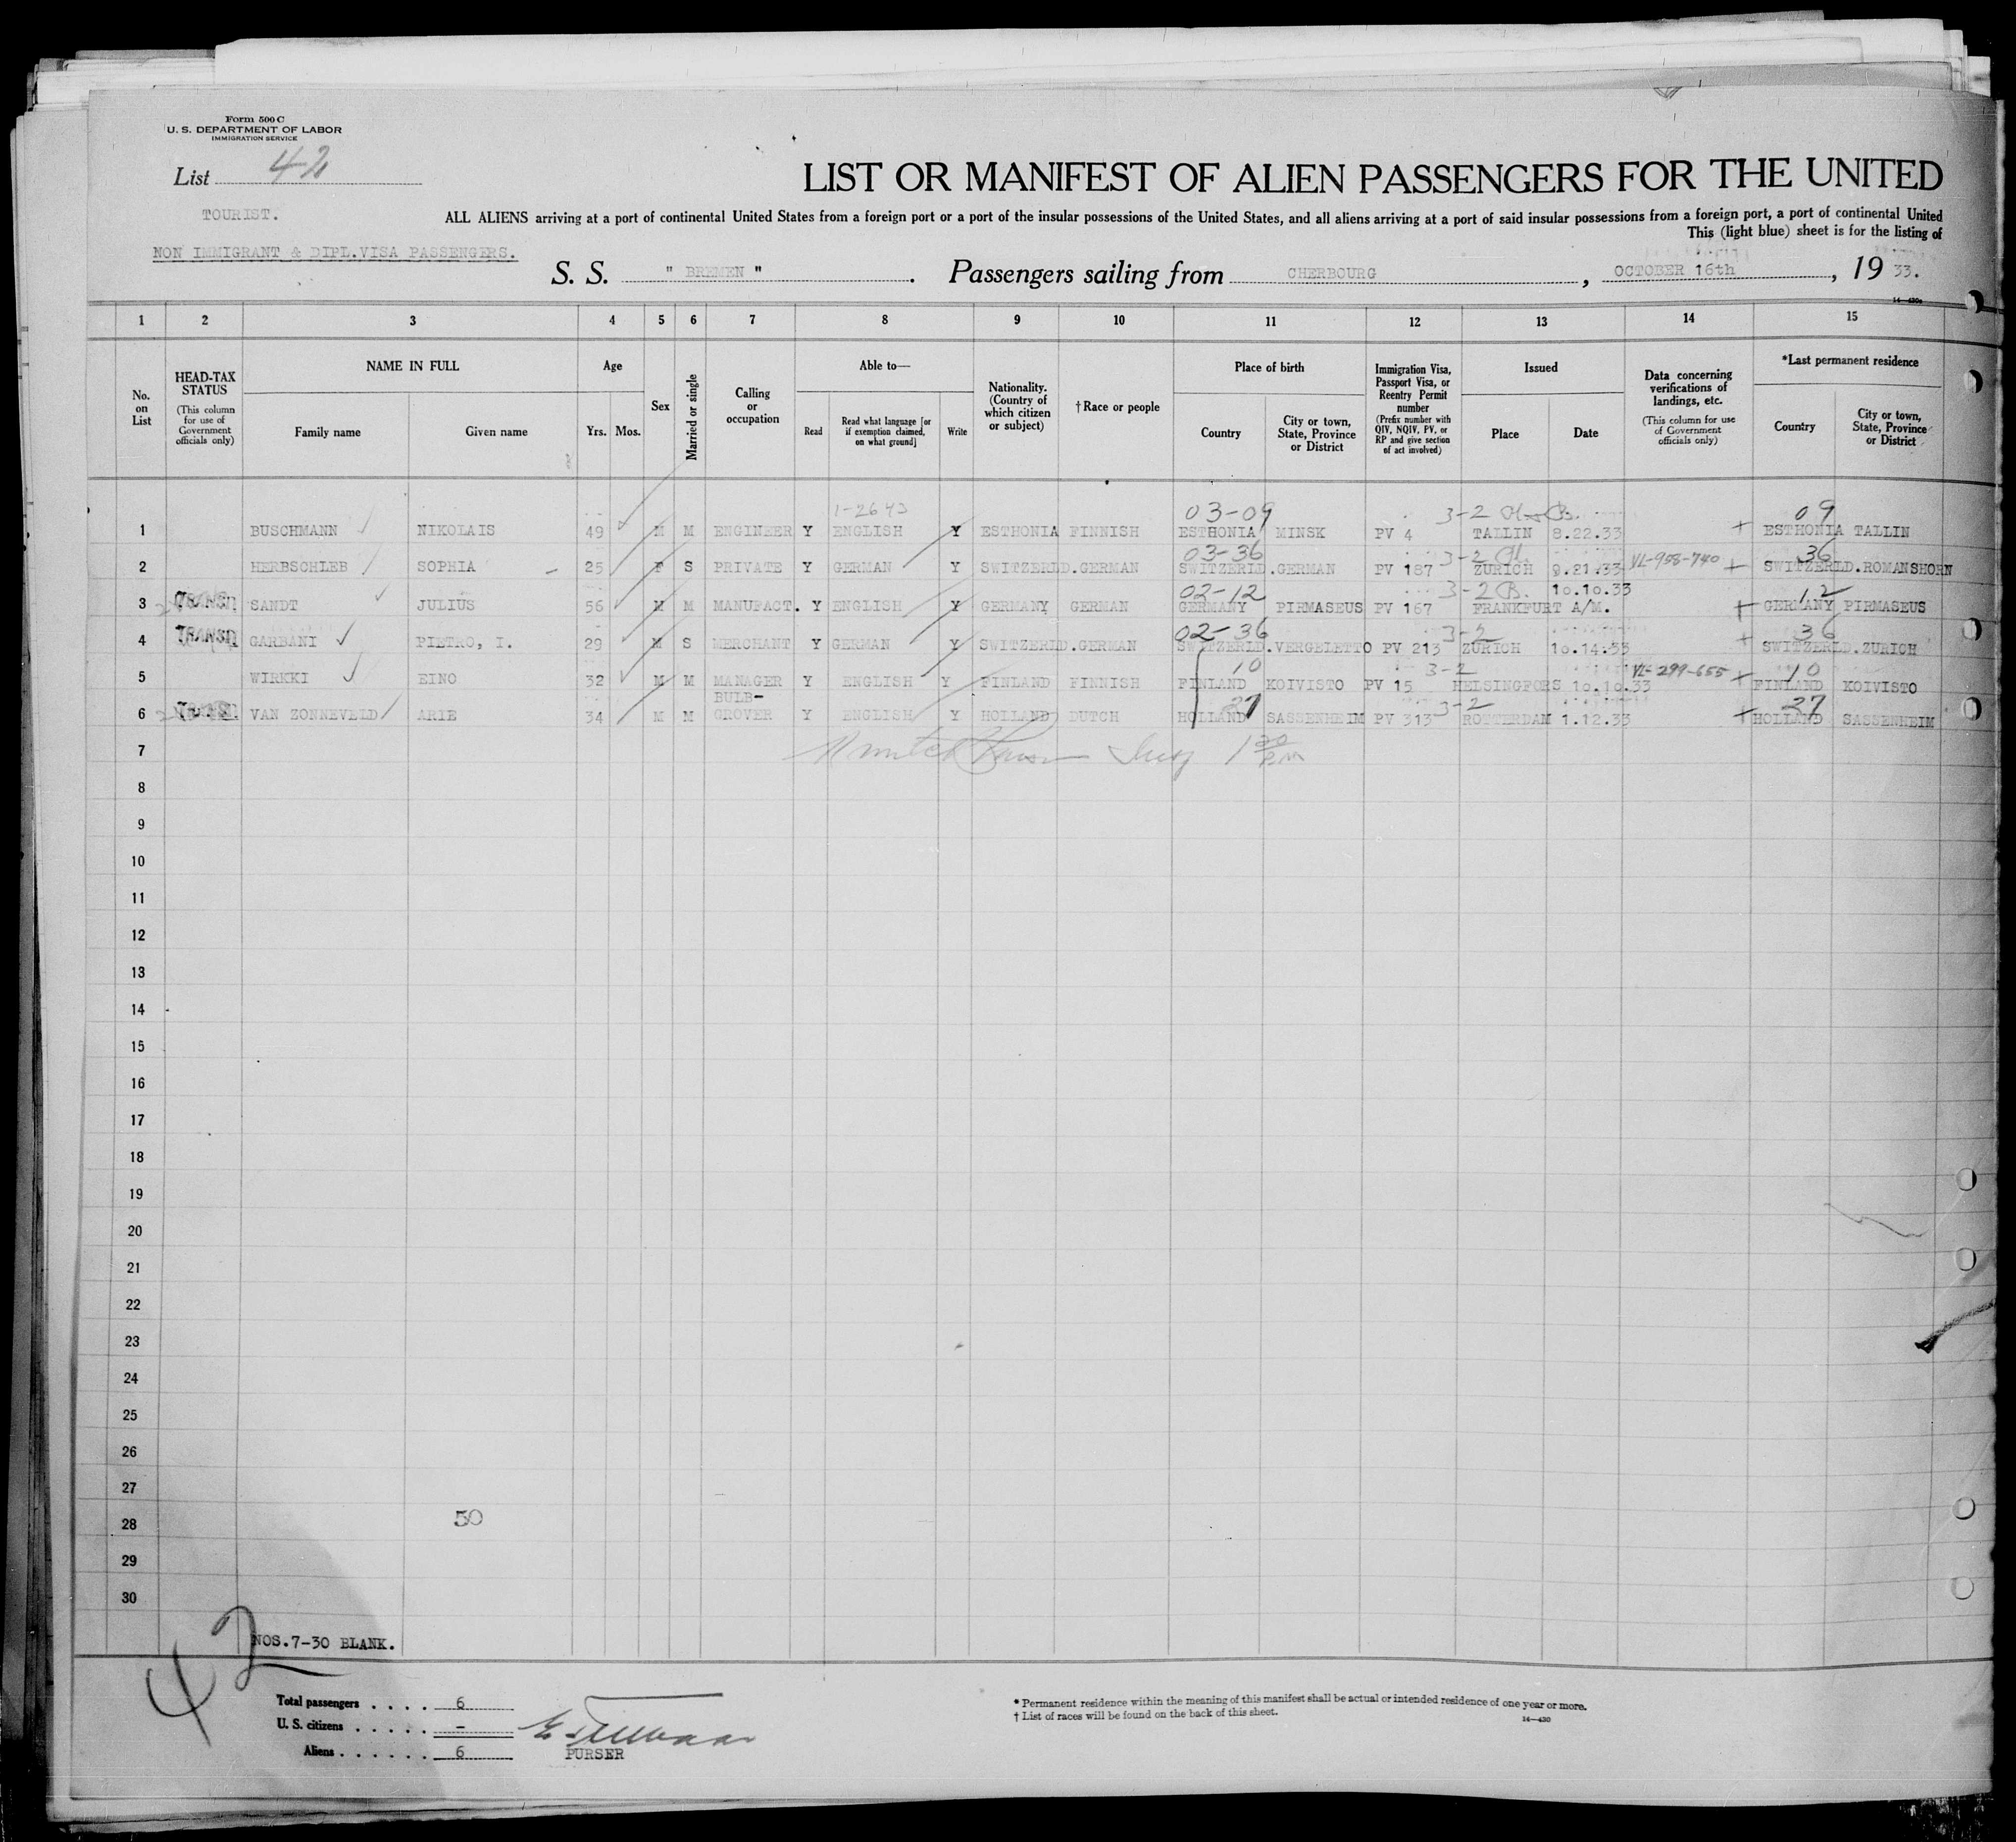 Form 500 C
U. S. DEPARTMENT OF LABOR
IMMIGRATION SERVICE
List 42
LIST OR MANIFEST OF ALIEN PASSENGERS FOR THE UNITED
TOURIST.
ALL ALIENS arriving at a port of continental United States from a foreign port or a port of the insular possessions of the United States, and all aliens arriving at a port of said insular possessions from a foreign port, a port of continental United
This (light blue) sheet is for the listing of
NON IMMIGRANT & DIPL.VISA PASSENGERS.
S. S. " BREMEN " . Passengers sailing from CHERBOURG , OCTOBER 16th , 19 33.
14—430a
1 2 3 4 5 6 7 8 9 10 11 12 13 14 15
No. on List
HEAD-TAX STATUS (This column for use of Government officials only)
NAME IN FULL
Family name
Given name
Age
Yrs. Mos.
Sex
Married or single
Calling or occupation
Able to—
Read
Read what language [or if exemption claimed, on what ground]
Write
Nationality. (Country of which citizen or subject)
†Race or people
Place of birth
Country
City or town, State, Province or District
Immigration Visa, Passport Visa, or Reentry Permit number (Prefix number with QIV, NQIV, PV, or RP and give section of act involved)
Issued
Place
Date
Data concerning verifications of landings, etc. (This column for use of Government officials only)
*Last permanent residence
Country
City or town, State, Province or District
1-2643 03-09 3-2 09
1 BUSCHMANN NIKOLAIS 49 M M ENGINEER Y ENGLISH Y ESTHONIA FINNISH ESTHONIA MINSK PV 4 TALLIN 8.22.33 + ESTHONIA TALLIN
03-36 3-2 36
2 HERBSCHLEB SOPHIA 25 F S PRIVATE Y GERMAN Y SWITZERLD.GERMAN SWITZERLD.GERMAN PV 187 ZURICH 9.21.33 VL-958-740 + SWITZERLD.ROMANSHORN
02-12 3-2 B. 10.10.33 12
3 TRANSIT SANDT JULIUS 56 M M MANUFACT. Y ENGLISH Y GERMANY GERMAN GERMANY PIRMASEUS PV 167 FRANKFURT A/M. + GERMANY PIRMASEUS
02-36 3-2 36
4 TRANSIT GARBANI PIETRO, I. 29 M S MERCHANT Y GERMAN Y SWITZERLD.GERMAN SWITZERLD.VERGELETTO PV 213 ZURICH 10.14.33 + SWITZERLD.ZURICH
10 3-2 10
5 WIRKKI EINO 32 M M MANAGER Y ENGLISH Y FINLAND FINNISH FINLAND KOIVISTO PV 15 HELSINGFORS 10.10.33 VL-299-655 + FINLAND KOIVISTO
BULB- 27 3-2 27
6 VAN ZONNEVELD ARIE 34 M M GROVER Y ENGLISH Y HOLLAND DUTCH HOLLAND SASSENHEIM PV 313 ROTTERDAM 1.12.33 + HOLLAND SASSENHEIM
7 1 30 PM
8
9
10
11
12
13
14
15
16
17
18
19
20
21
22
23
24
25
26
27
28 50
29
30
NOS.7-30 BLANK.
42
Total passengers . . . . 6
U. S. citizens . . . . . –
Aliens . . . . . . 6
PURSER
* Permanent residence within the meaning of this manifest shall be actual or intended residence of one year or more.
† List of races will be found on the back of this sheet.
14—430